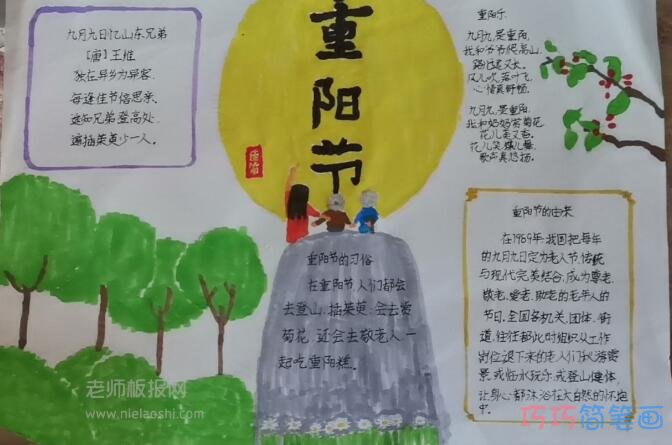 重
阳
节
九月九日忆山东兄弟
【唐】王维
独在异乡为异客,
每逢佳节倍思亲。
遥知兄弟登高处,
遍插茱萸少一人。
重阳乐
九月九,是重阳,
我和爷爷爬高山。
路途远又长。
风儿吹,落叶飞,
心情真舒畅。
九月九,是重阳,
我和奶奶赏菊花
花儿美又香。
花儿笑,
歌声真悠扬。
重阳节的习俗
在重阳节,人们都会
去登山、插茱萸、会去赏
菊花,还会去敬老人一
起吃重阳糕。
重阳节的由来
在1989年,我国把每年
的九月九日定为老人节,传统
与现代完美结合,成为尊老、
敬老、爱老、助老的老年人的
节日。全国各机关、团体、街
道,往往都此时组织从工作
岗位退下来的老人们秋游赏
景,或临水玩乐,或登山健体,
让身心都沐浴在大自然的怀抱
中。
老师板报网
www.nielaoshi.com
巧巧简笔画